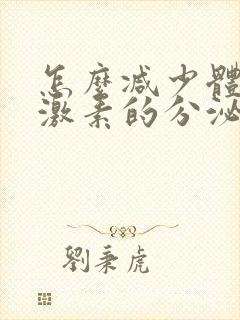 怎麼減少體
激素的分泌
劉秉虎